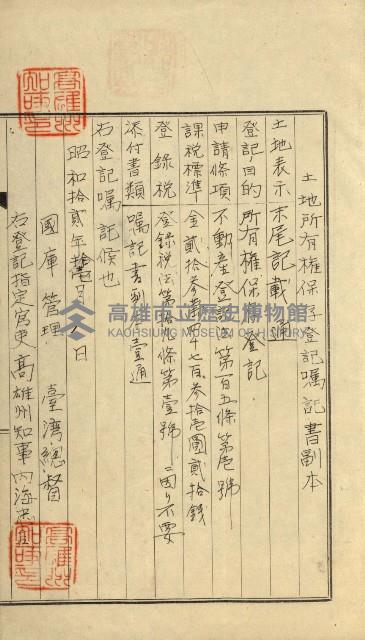 土地所有權保存登記囑記書副本
土地表示 末尾記載通
登記ノ目的 所有權保 登記
申請條項 不動產登記法第一百五條第壱號
課稅標準 金貳拾參 七百參拾壱圓貳拾錢
登錄稅 登錄稅法第拾九條第壹號ニ因リ不要
添付書類 囑記書副 壹通
右登記囑記候也
昭和拾貳年 月 日
國庫管理 臺灣總督
右登記指定官吏高雄州知事內海忠
高雄市立歷史博物館
KAOHSIUNG MUSEUM OF HISTORY